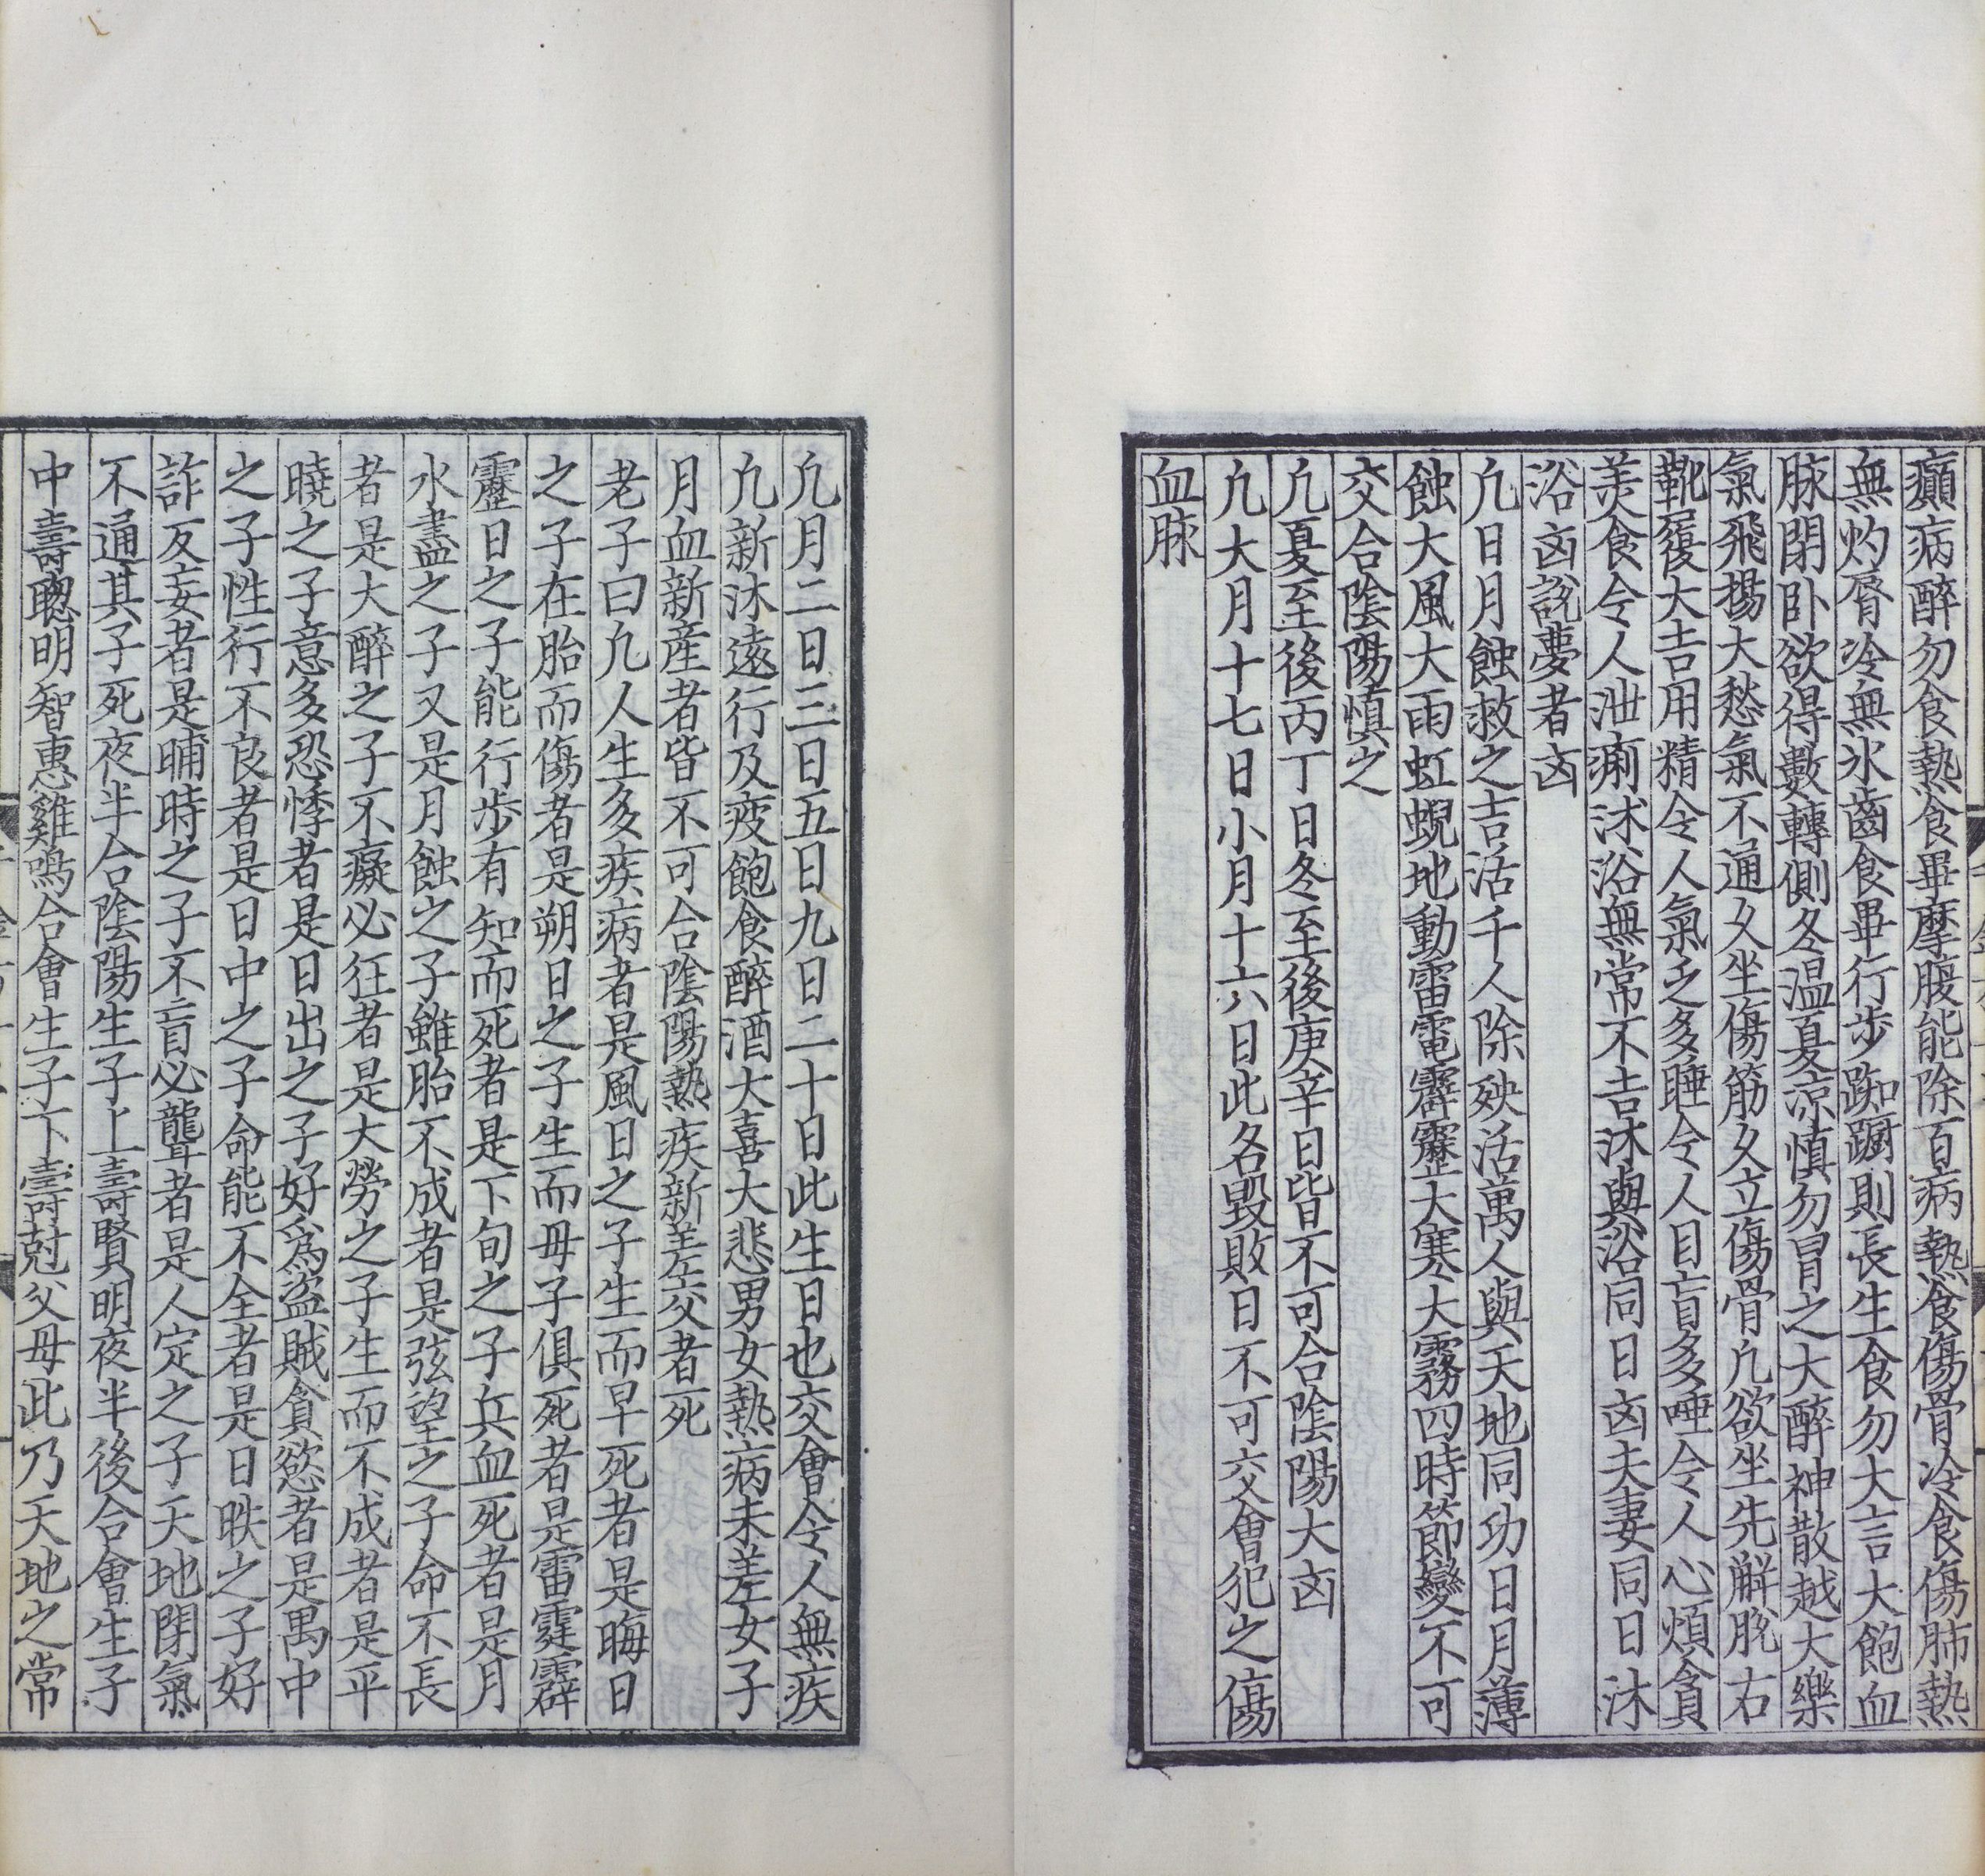 癲病醉勿食熱食畢摩腹能除百病熱食傷骨冷食傷肺熱
無灼脣冷無氷齒食畢行步踟蹰則長生食勿大言大飽血
脉閉卧欲得數轉側冬温夏凉慎勿冒之大醉神散越大樂
氣飛揚大愁氣不通久坐傷筋久立傷骨凢欲坐先解脫右
靴履大吉用精令人氣乏多睡令人目盲多唾令人心煩貪
美食令人泄痢沐浴無常不吉沐與浴同日凶夫妻同日沐
浴凶說夢者凶
凢日月蝕救之吉活千人除殃活萬人與天地同功日月薄
蝕大風大雨虹蜺地動雷電霹靂大寒大霧四時節變不可
交合隂陽慎之
凢夏至後丙丁日冬至後庚辛日皆不可合隂陽大凶
凢大月十七日小月十六日此名毀敗日不可交會犯之傷
血脉
凢月二日三日五日九日二十日此生日也交會令人無疾
凢新沐遠行及疲飽食醉酒大喜大悲男女熱病未差女子
月血新産者皆不可合隂陽熱疾新差交者死
老子曰凢人生多疾病者是風日之子生而早死者是晦日
之子在胎而傷者是朔日之子生而母子俱死者是雷霆霹
靂日之子能行步有知而死者是下旬之子兵血死者是月
水盡之子又是月蝕之子雖胎不成者是弦望之子命不長
者是大醉之子不癡必狂者是大勞之子生而不成者是平
曉之子意多恐悸者是日出之子好爲盜賊貪慾者是禺中
之子性行不良者是日中之子命能不全者是日昳之子好
詐反妄者是晡時之子不盲必聾者是人定之子天地閉氣
不通其子死夜半合隂陽生子上壽賢明夜半後合會生子
中壽聰明智惠雞鳴合會生子下壽尅父母此乃天地之常